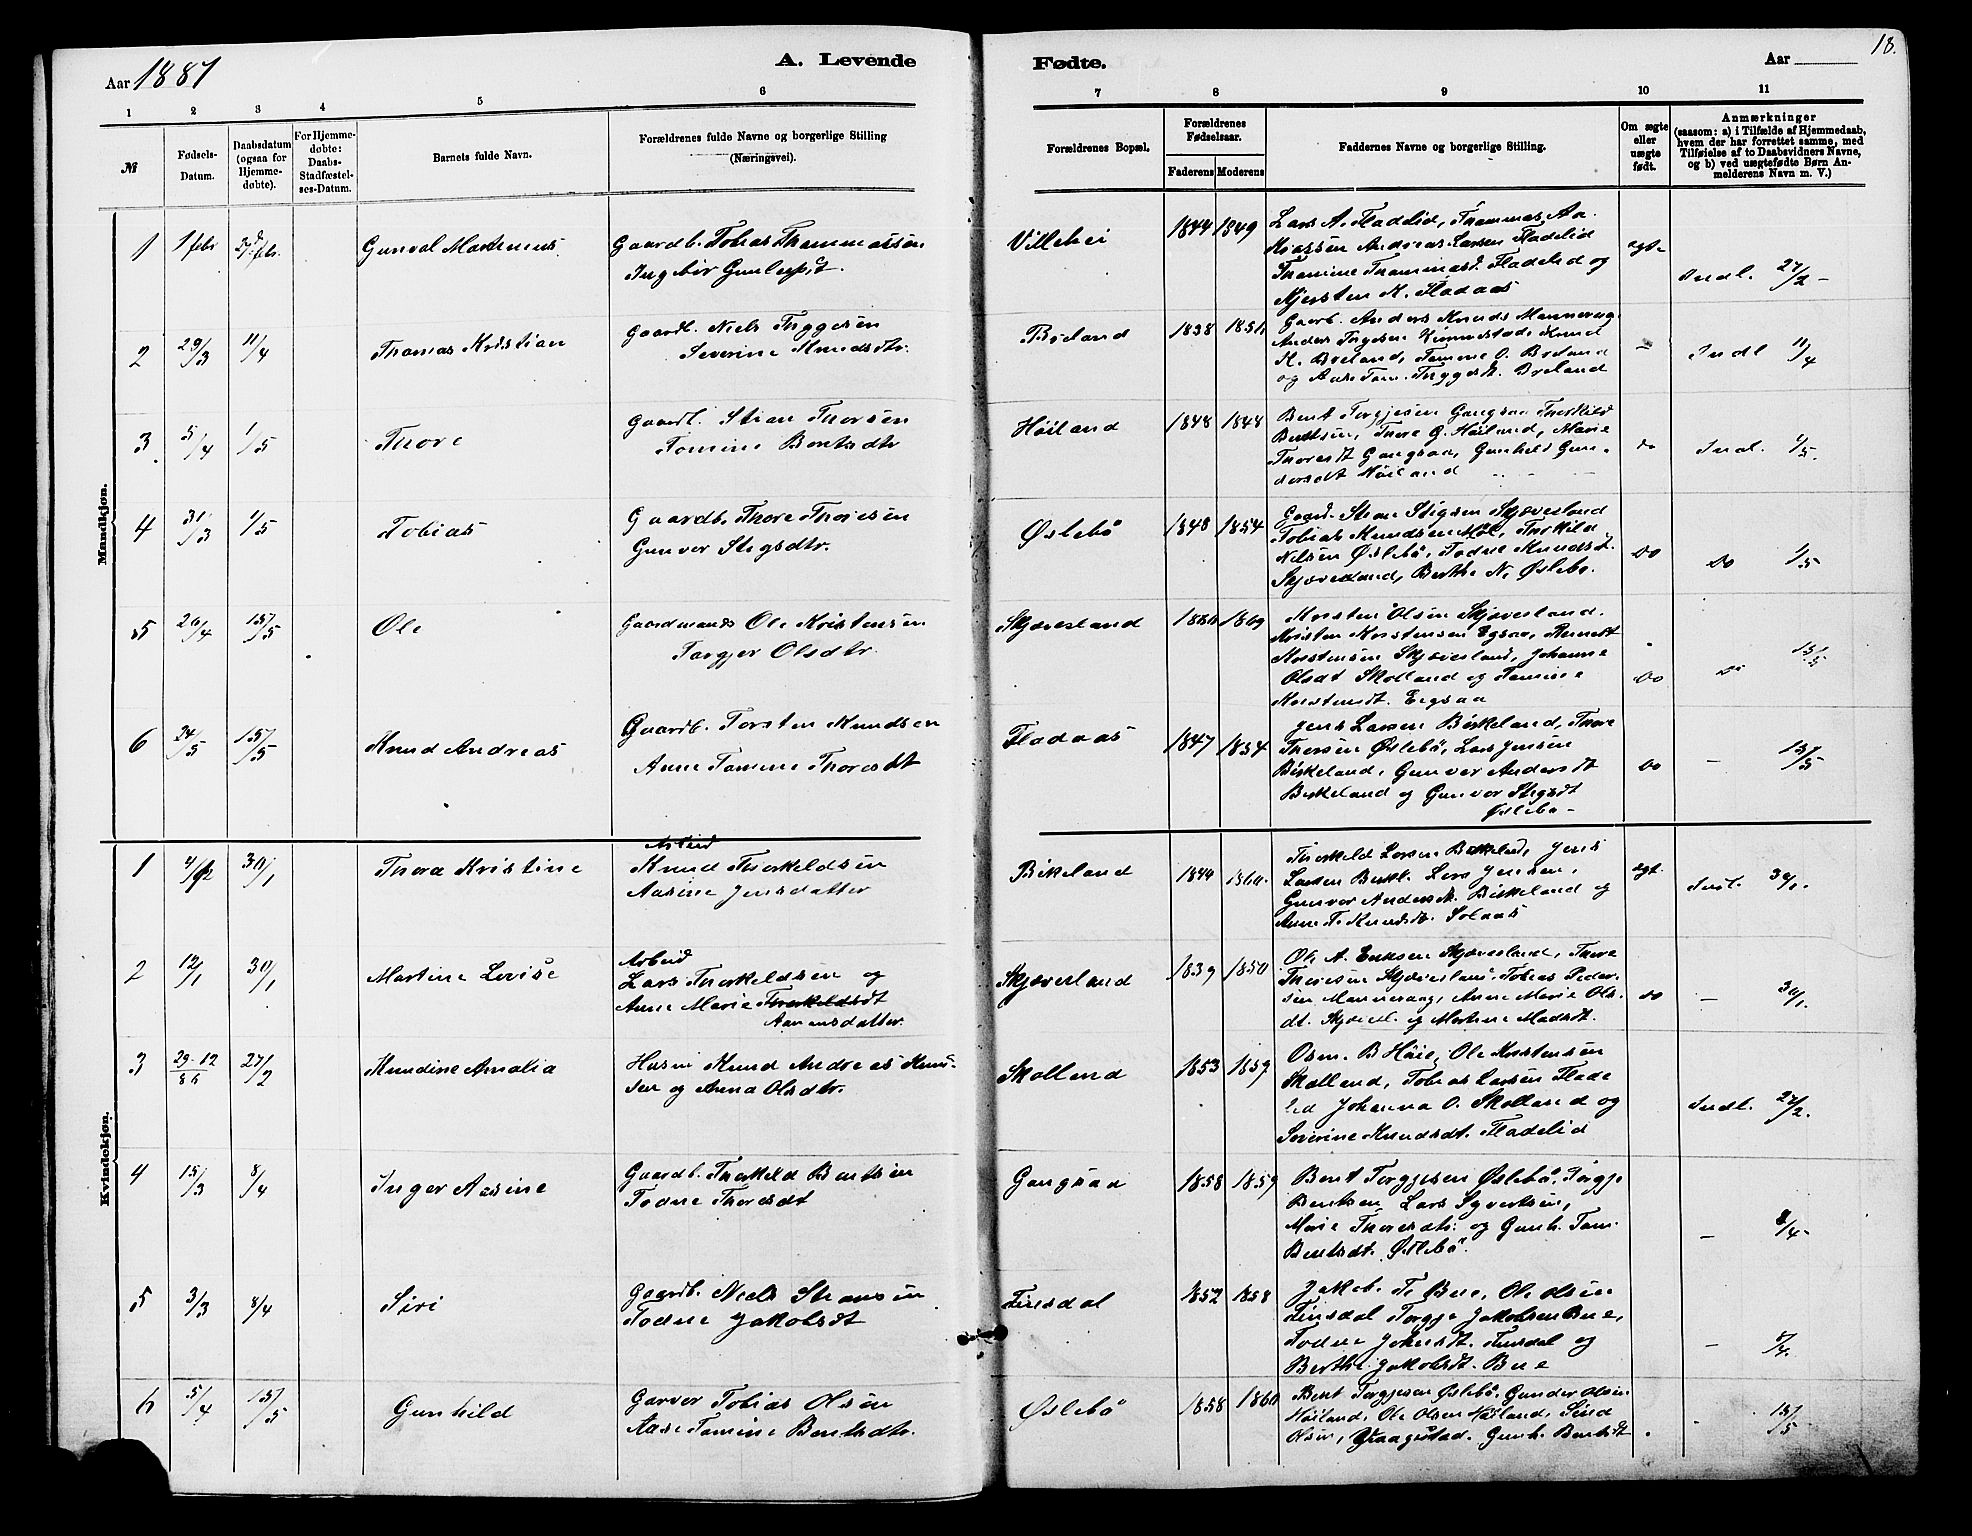 Aar 1887
A. Levende
Fødte.
Aar
18.
1 2 3 4 5 6 7 8 9 10 11
№
Fødsels-
Datum.
Daabsdatum
(ogsaa for
Hjemme-
døbte).
For Hjemme-
døbte:
Daabs-
Stadfæstel-
ses-Datum.
Barnets fulde Navn.
Forældrenes fulde Navne og borgerlige Stilling
(Næringsvei).
Forældrenes Bopæl.
Forældrenes
Fødselsaar.
Faderens Moderens
Faddernes Navne og borgerlige Stilling.
Om ægte
eller
uægte
født.
Anmærkninger
(saasom: a) i Tilfælde af Hjemmedaab,
hvem der har forrettet samme, med
Tilføielse af to Daabsvidners Navne,
og b) ved uægtefødte Børn An-
melderens Navn m. V.)
Mandkjøn.
1 1 febr 27d febr. Gunval
Gaardb. Tobias Thommassen
Ingebor
1844 1849
Lars A. Fladelid, Thommas Aa.
Andreas Larsen Fladelid
Thomine Thommasd. Fladelid og
K. Fladaas
egt.
Indl. 27/2 -
2 29/3 11/4 Thomas Kristian
Gaardb. Niels Tryggesen
Severine Knudsdtr.
Breland
1838
Gaardb. Anders Knuds
Anders Knud
K. Breland, Tomine O. Breland
og Aase Tom. Tryggesdt. Breland
-
Indl 11/4
3 5/4 1/5 Thore
Gaardb. Stian Thorsen
Tomine Bentsdtr
Høiland
1848 1848
Bent Torgjesen Gangsaa Thorkild
Bentsen, Thore G. Høiland, Marie
Thoresdt Gangsaa, Gunhild Gun-
dersdt Høiland
do
Indl. 1/5.
4 31/3 1/5 Tobias
Gaardb. Thore Thoresen
Gunvor Stigsdtr.
Øslebø
1848 1854
Gaard. Stian Stigsen Skjævesland
Tobias Knudsen Thorkild
Nilsen Øslebø, Todne Knudsdt.
Skjævesland, Berthe N. Øslebø.
do
Do 1/5
5 20/4 15/5 Ole
Gaardmands Ole Kristensen
Torgjer Olsdtr.
Skjævesland
Kristen Olsen Skjævesland.
Kristen Kristensen Egsaa,
Kristensen Skjævesland, Johanne
Olsdt Skolland og Tomine
Kristensdt. Eegsaa
Do
Do 15/5
6 24/5 15/5 Knud Andreas
Gaardb. Torsten Knudsen
Anne Tomine Thoresdt
Fladaas
1847 1854
Jens Larsen Birkeland, Thore
Thorsen Øslebø, Lars Jensen
Birkeland, Gunvor Andersdt
Birkeland og Gunvor Stigsdt
Øslebø -
Do
- 15/5
Kvindekjøn.
1 30/1 Thora Kristine
Arbeid
Knud Thorkeldsen
Aasine Jensdatter
Birkeland
Thorkeld Larsen Birkeland, Jens
Larsen Birkl. Lars Jensen,
Gunvor Andersdt. Birkeland og
Anne T. Knudsdt. Solaas
egt.
Indl. 30/1.
2 12/1 30/1 Martine Lovise
Arbeid
Lars Thorkeldsen og
Anne Marie Thorkeldsdt
Aanensdatter.
Skjævesland
1839 1850
Ole A. Eriksen Skjævesland, Thore
Thoresen Skjævesland. Tobias Peder-
sen Mannerang, Anne Marie Ols-
dt. Skjævel. og Martine Madsdt.
do
- 30/1.
3 29-12/86 27/2 Knudine Amalia
Husm Knud Andreas Knud-
sen og Anna Olsdtr.
Skolland
1853 1859
Osm. B Høie, Ole Kristensen
Skolland, Tobias Larsen Flade
lid Johanna O. Skolland og
Severine Knudsdt. Fladelid
Indl. 27/2.
4 15/3 8/4 Inger Aasine
Gaardb. Thorkeld Bentsen
Todne Thoresdt
Gangsaa
1858 1859
Bent Torgjesen Øslebø, Torgje
Bentsen Lars Syvertsen,
Marie Thoresdtr. og Gunh. Tom.
Bentsdt. Øslebø.
- 8/4-
5 3/3 8/4 Siri
Gaardb. Niels Stiansen
Todne Jakobsdt
Finsdal
1852 1858
Jakob T. Bue, Ole Olsen
Finsdal Torgje Jakobsen Bue,
Todne Johnsdt. Finsdal og
Berthe Jakobsdt. Bue
-
6 5/4 15/5 Gunhild
Garver Tobias Olsen
Aase Tomine Bentsdtr.
Øslebø
1858 1860
Bent Torgjesen Øslebø. Gunder Olsen
Høiland, Ole Olsen Høiland,
Olsen, Gunh. Bentsdt
15/5